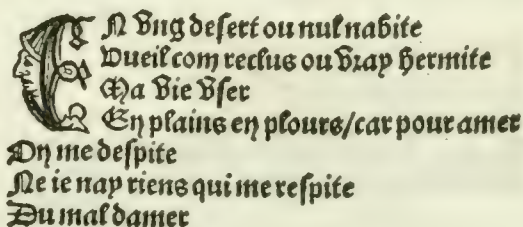 EN vng desert ou nul nabite
Vueil com reclus ou vray hermite
Ma vie vser
En plains en plours/car pour amer
On me despite
Ne ie nay riens qui me respite
Du mal damer